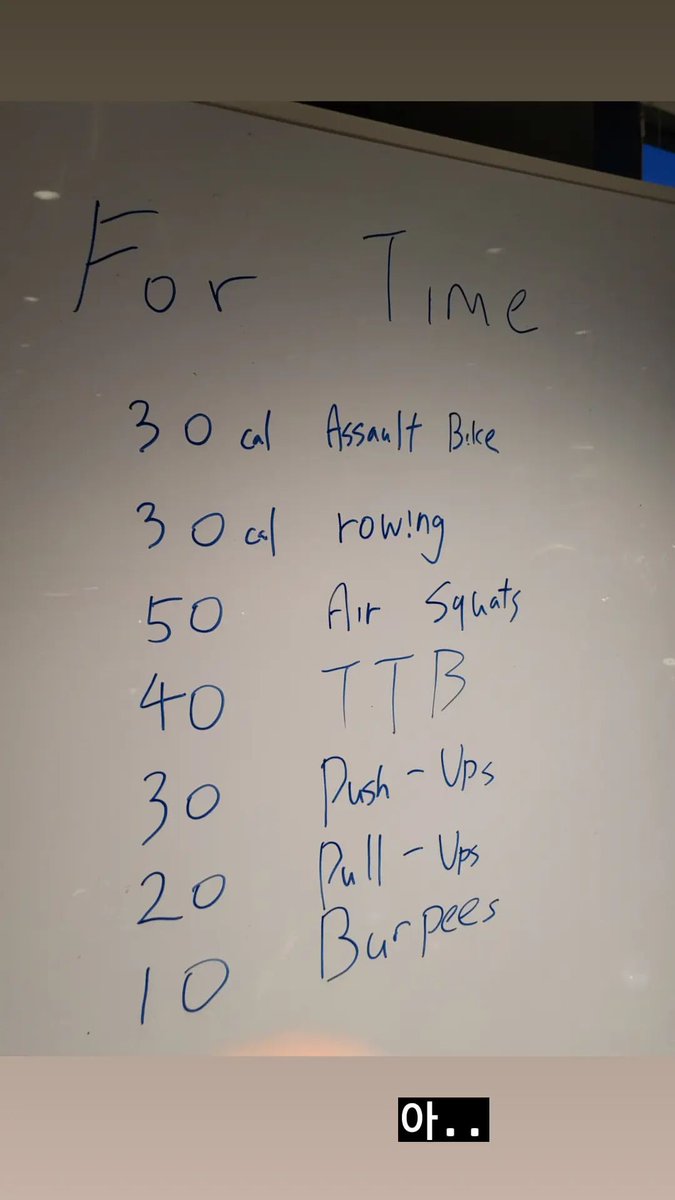 For Time
30 cal Assault Bike
30 cal row!ng
50 Air Squats
40 TTB
30 Push-Ups
20 Pull-Ups
10 Burpees
아..